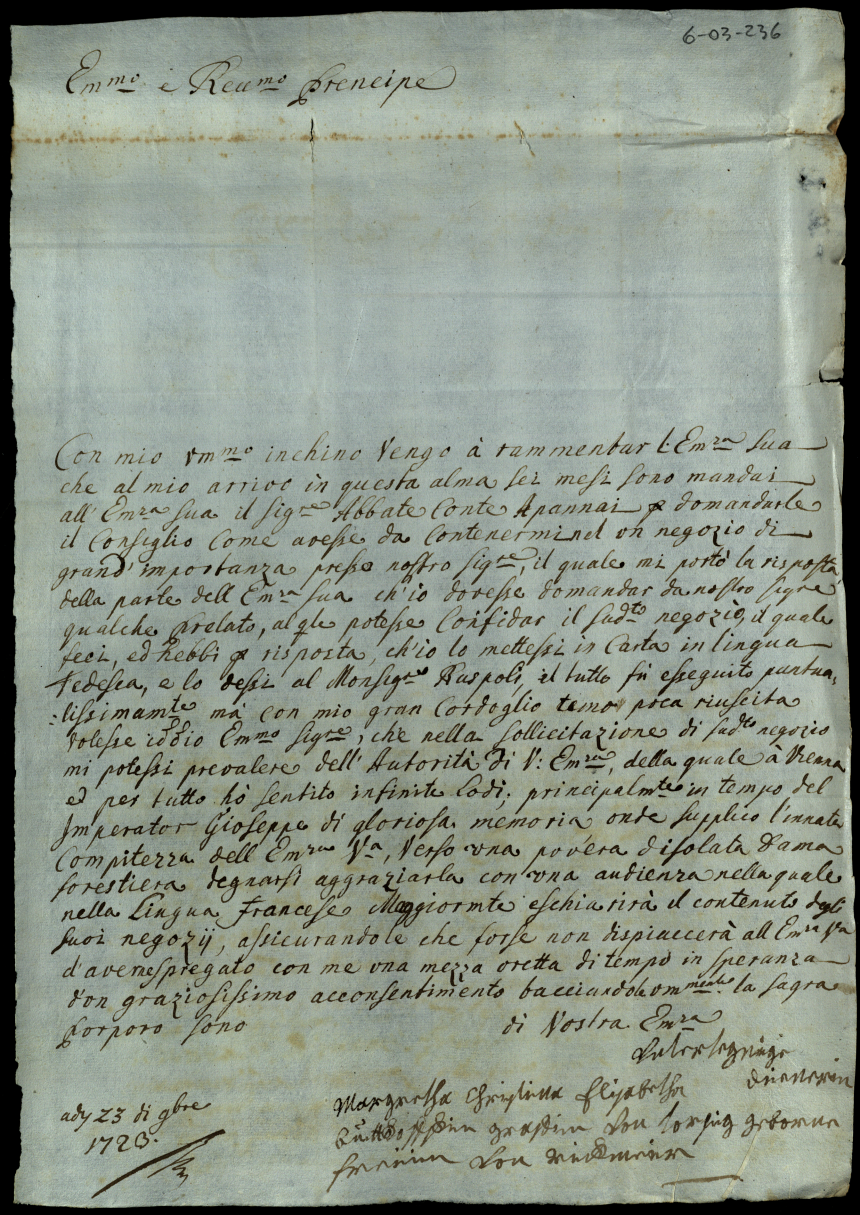 6-03-236
Em.mo e Reu.mo Prencipe
Con mio vm.mo inchino Vengo à rammentar l'Em.za sua
che al mio arrivo in questa alma sei mesi sono mandai
all'Em.za sua il sig.re Abbate Conte Apannai p domandarle
il Consiglio Come avesse da Contenermi nel vn negozio di
grand'importanza presso nostro sig.re, il quale mi portò la risposta
della parte dell'Em.za sua ch'io dovesse domandar da nostro sig.re
qualche Prelato, al q.le potesse Confidar il sud.to negozio, il quale
feci, ed hebbi p risposta, ch'io lo mettessi in Carta in lingua
Tedesca, e lo dessi al Monsig.re Ruspoli, il tutto fù esseguito puntua„
„lissimam.te mà con mio gran Cordoglio temo poca riuscita
volesse iddio Em.mo sig.re, che nella sollicitazione di sud.to negozio
mi potessi prevalere dell'Autorità di V: Em.za, della quale à Vienna
ed per tutto hò sentito infinite Lodi, principalm.te in tempo del
Imperator Gioseppe di gloriosa memoria onde supplico l'innata
Compitezza dell'Em.za V.a, Verso vna povera disolata Dama
forestiera degnarsi aggraziarla con vna audienza nella quale
nella Lingua francese Maggiorm.te eschiarirà il contenuto degli
suoi negozij, assicurandole che forse non dispiaccerà all'Em.za V.ra
d'aver mespregato con me vna mezza oretta di tempo in speranza
d'vn graziosissimo acconsentimento bacciandole vm.mente la sagra
Porporo sono
di Vostra Em.za
adj 23 di 9bre
1723.
dienerin
Margretha Christina Elisabetha
gräffin Von geborne
freiin Von